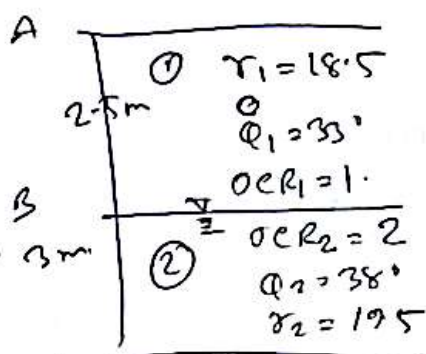 A
① γ₁ = 18.5
2.5m
φ₁ = 33°
OCR₁ = 1.
B
OCR₂ = 2
3m
②
φ₂ = 38°
γ₂ = 19.5